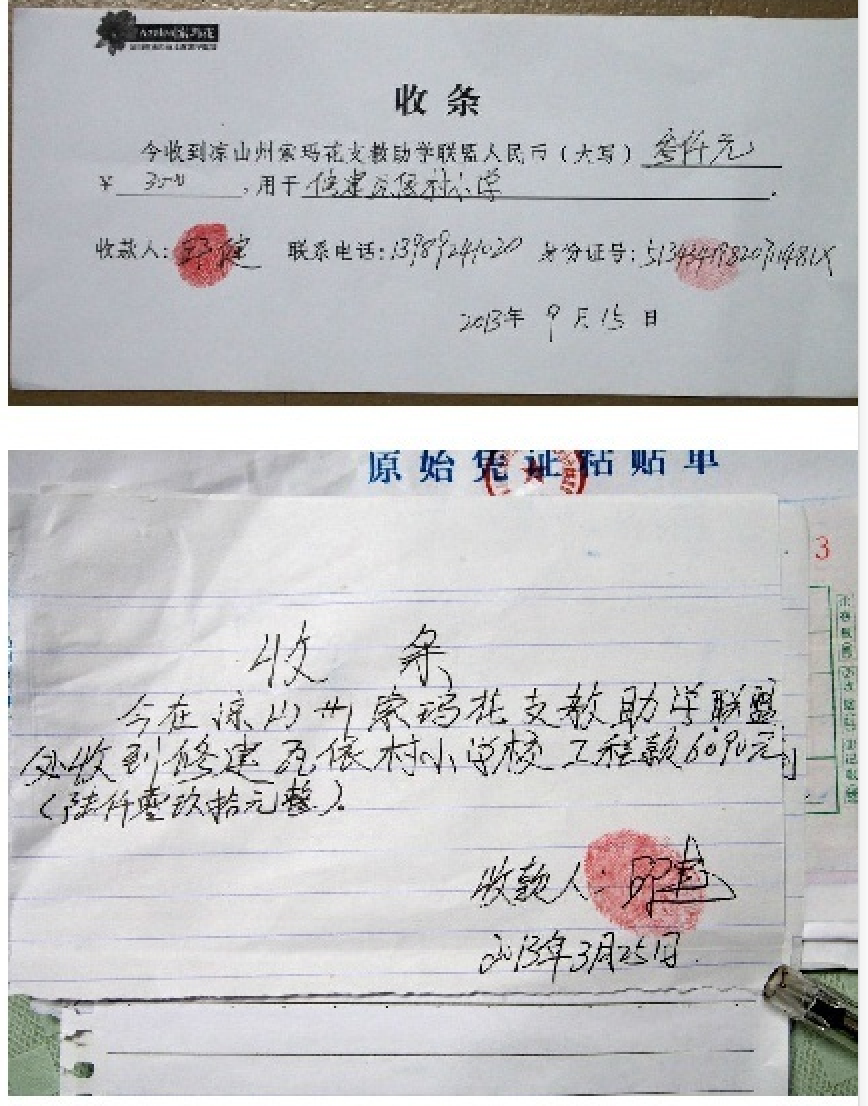 Azalea索玛花
收条
今收到凉山州索玛花支教助学联盟人民币（大写）叁仟元
￥ 3000 ，用于 修建瓦依村小学 .
收款人: 健 联系电话: 身份证号:
2013年 9 月 15 日
原始凭证粘贴单
3
收 条
今在凉山州索玛花支教助学联盟
处收到修建瓦依村小学校工程款6090元
（陆仟零玖拾元整）。
收款人:
2013年3月25日.